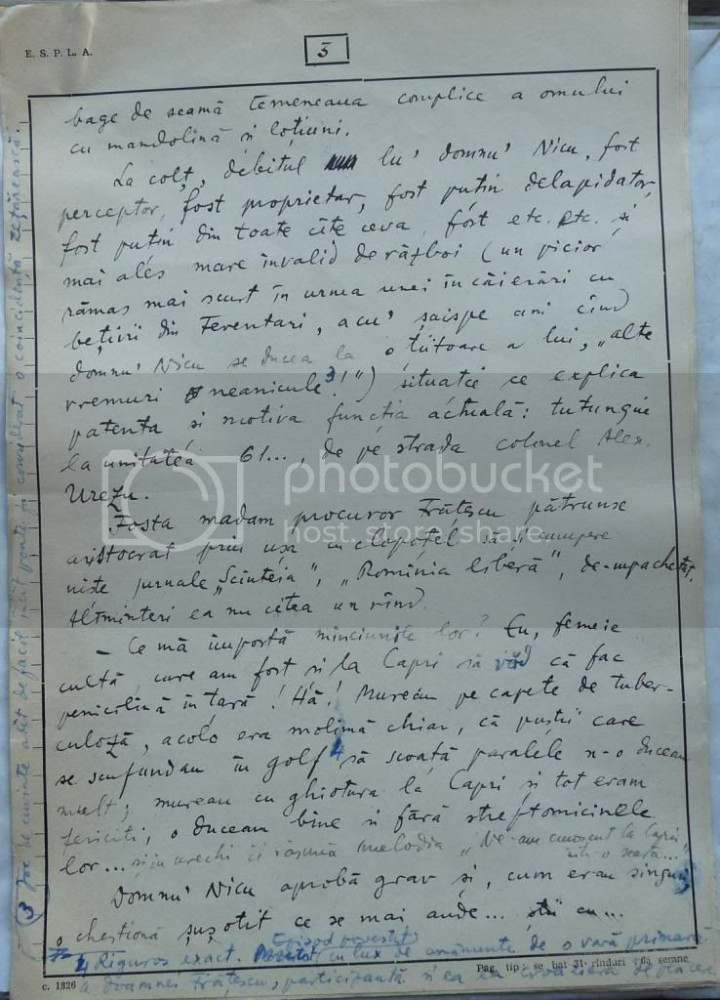 E. S. P. L. A.
3
bage de seamă temeneaua complice a omului
cu mandolină și loțiuni.
La colț, debitul lu' domnu' Nicu, fost
perceptor, fost proprietar, fost puțin delapidator,
fost puțin din toate cîte ceva, fost etc. etc. și
mai ales mare invalid de război (un picior
rămas mai scurt în urma unei încăierări cu
bețivii din Ferentari, acu' șaispe ani cînd
domnu' Nicu se ducea la o țiitoare a lui, „alte
vremuri neanicule³!") situație ce explica
patenta și motiva funcția actuală: tutungiu
la unitatea 61..., de pe strada colonel Alex.
Urezu.
Fosta madam procuror Frățescu pătrunse
aristocrat prin ușa cu clopoțel să-și cumpere
niște jurnale „Scînteia", „Romînia liberă", de-mpachetat,
altminteri ea nu citea un rînd.
— Ce mă importă minciunile lor? Eu, femeie
cultă, care am fost și la Capri să văd că fac
penicilină în țară! Hă! Mureau pe capete de tuber-
culoză, acolo era molimă chiar, că puștii care
se scufundau în golf⁴ să scoată paralele n-o duceau
mult; mureau cu ghiotura la Capri și tot erau
fericiți, o duceau bine și fără streptomicinele
lor... și în urechi îi răsună melodia „Ne-am cunoscut la Capri,
într-o seară...
Domnu' Nicu aprobă grav și, cum erau singuri,
o chestionă șușotit ce se mai aude... știi cu...
4 Riguros exact. Episod povestit cu lux de amănunte de o vară primară
a doamnei Frățescu, participantă și ea la croaziera de plăcere
Pag. tip : se bat 31 rînduri semne
c. 1326
3 Joc de cuvinte atît de facil încît poate fi considerat o coincidență zețărească.
photobucket
host. store. share.